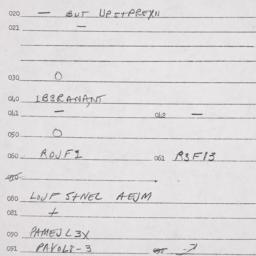 020 — BUT UPSTPREXN
021 —
030 O
040 IBSRANANT
041 — 042 —
050 O
060 ROUF1 061 R3F13
080 LOUF STNEL AEJM
081 +
090 PAMEJL3X
091 PAVOLT-3